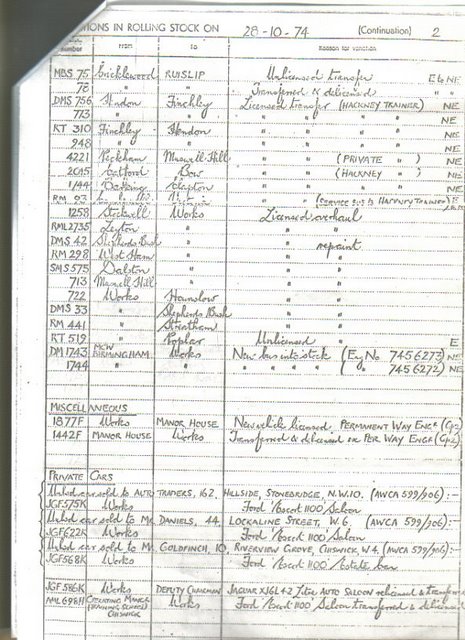 IONS IN ROLLING STOCK ON 28-10-74 (Continuation) 2
number From To Reason for variation
MBS 75 Cricklewood RUISLIP Unlicensed transfer E to NE
78 " " Transferred & delicensed "
DMS 756 Hendon Finchley Licensed transfer (HACKNEY TRAINER) NE
773 " " " " " " NE
RT 310 Finchley Hendon " " " " NE
948 " " " " " " NE
4221 Peckham Muswell Hill " " (PRIVATE " ) NE
2045 Catford Bow " " (HACKNEY " ) NE
1144 Clapton " " " " NE
RM (SERVICE BUS to HACKNEY TRAINER)
1258 Stockwell Works Licensed overhaul
RML 2735 Leyton " " "
DMS 42 Shepherds Bush " " repaint
RM 298 West Ham " " "
SMS 575 Dalston " " "
713 Muswell Hill " " "
722 Works Hounslow " "
DMS 33 " Shepherds Bush " "
RM 441 " Streatham " "
RT 519 " Poplar Unlicensed " E
DM 1743 MCW BIRMINGHAM Works New bus into stock (Eng No 7456273) NE
1744 " " " " " " ( " 7456272) NE
MISCELLANEOUS
1877F Works MANOR HOUSE New vehicle licensed, PERMANENT WAY ENGR (Gp2)
1442F MANOR HOUSE Works Transferred & delicensed ex PER. WAY ENGR (Gp2)
PRIVATE CARS
Used car sold to AUTO TRADERS, 162, HILLSIDE, STONEBRIDGE, N.W.10. (AWCA 599/906) :-
JGF575K Works Ford Escort 1100 Saloon
Used car sold to MR. DANIELS, 44, LOCKALINE STREET, W.6. (AWCA 599/906) :-
JGF622K Works Ford Escort 1100 Saloon
Used car sold to MR. GOLDFINCH, 10, RIVERVIEW GROVE, CHISWICK, W.4. (AWCA 599/906) :-
JGF568K Works Ford Escort 1100 Estate car
JGF586K Works DEPUTY CHAIRMAN JAGUAR XJ6L 4.2 Litre AUTO SALOON relicensed & transferred
698H OPERATING MANAGER (TRAINING SCHOOL) CHISWICK Works Ford Escort 1100 Saloon transferred & delicensed